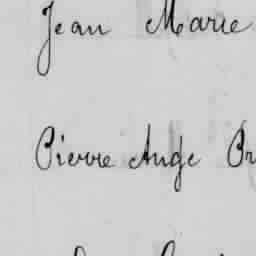 Jean Marie
Pierre Ange